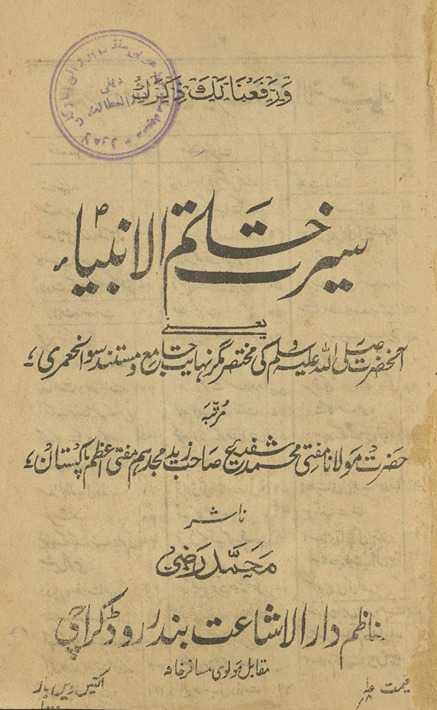 ورفعنا لك ذكرك
سیرت خاتم الانبیاء
یعنی
آنحضرت صلی اللہ علیہ وسلم کی مختصر مگر نہایت جامع و مستند سوانحعمری
مرتبہ
حضرت مولانا مفتی محمد شفیع صاحب زید مجدہم مفتی اعظم پاکستان
ناشر
محمد رضی
ناظم دارالاشاعت بندر روڈ کراچی
مقابل مولوی مسافر خانہ
قیمت